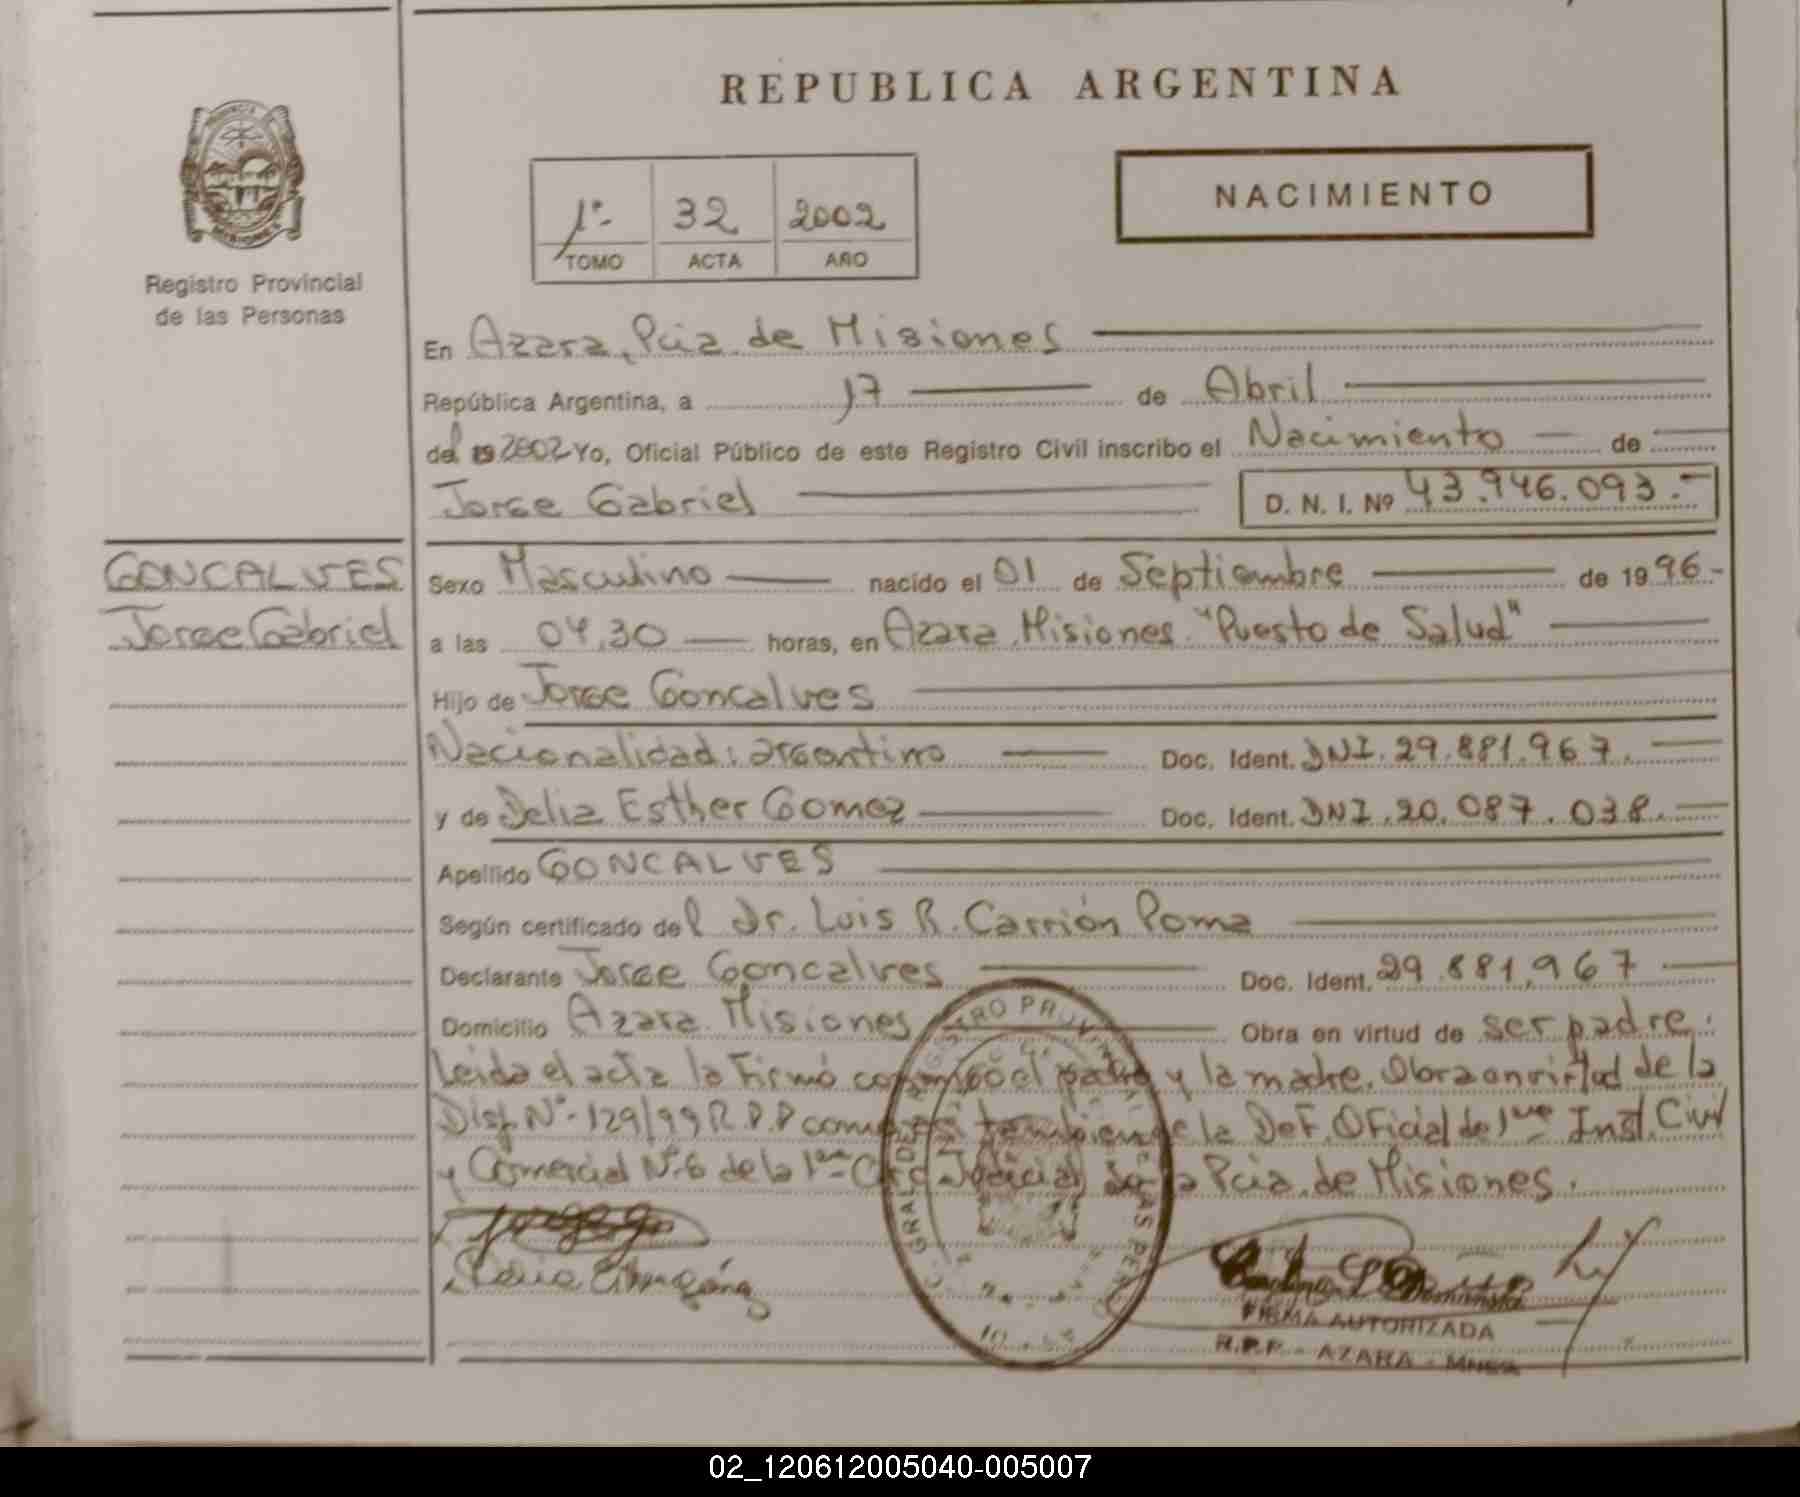 REPUBLICA ARGENTINA
NACIMIENTO
1º- 32 2002
TOMO ACTA AÑO
Registro Provincial
de las Personas
En Azara, Pcia de Misiones
República Argentina, a 17 de Abril
del 19 2002 Yo, Oficial Público de este Registro Civil inscribo el Nacimiento de
Jorge Gabriel D. N. I. Nº 43.946.093.-
GONCALVES
Jorge Gabriel
Sexo Masculino nacido el 01 de Septiembre de 1996-
a las 04,30 horas, en Azara Misiones "Puesto de Salud"
Hijo de Jorge Goncalves
Nacionalidad: argentino Doc. Ident. DNI. 29.881.967.
y de Delia Esther Gomez Doc. Ident. DNI. 20.087.038.
Apellido GONCALVES
Según certificado del Dr. Luis R. Carrión Poma
Declarante Jorge Goncalves Doc. Ident. 29.881,967
Domicilio Azara Misiones Obra en virtud de ser padre.
Leida el acta la Firmó conmigo el padre y la madre. Obra en virtud de la
Disp Nº- 129/99 R.P.P como es tambien de la Def. Oficial de 1ra Inst. Civil
y Comercial Nº 6 de la 1ra Judicial de la Pcia. de Misiones.
FIRMA AUTORIZADA
R.P.P. - AZARA - MNES
02_120612005040-005007